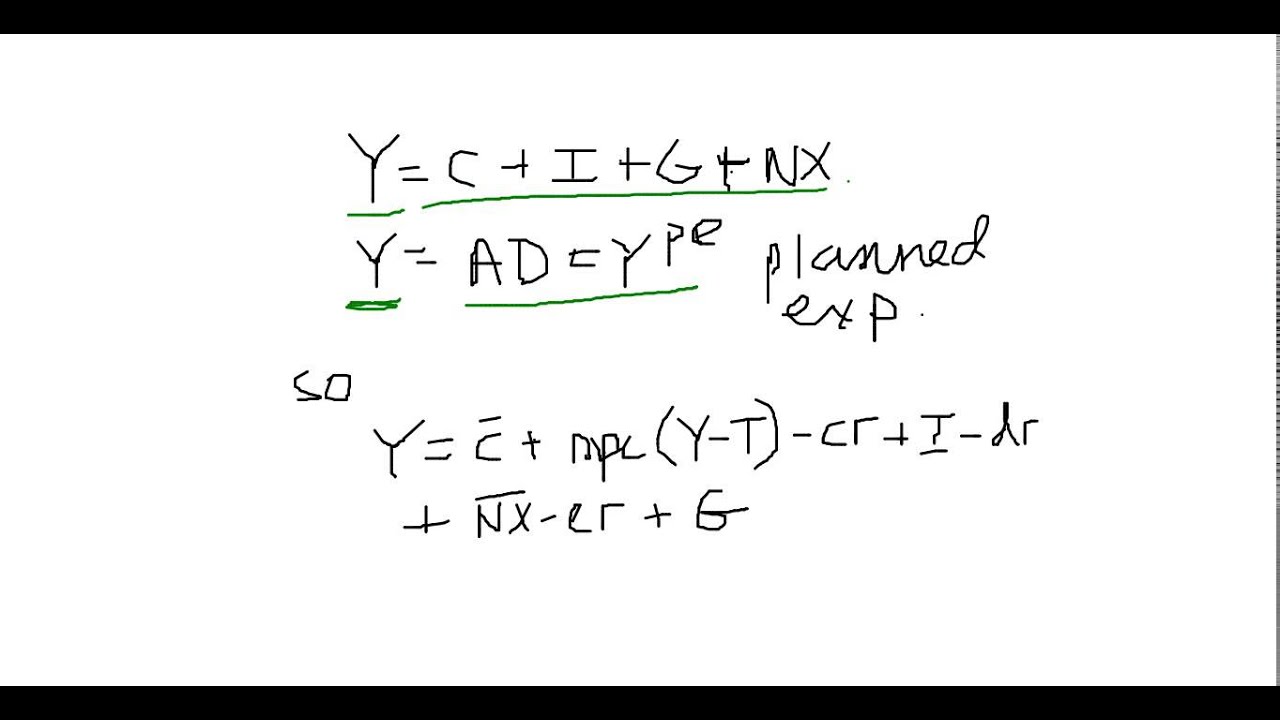 Y = C + I + G + NX.
Y = AD = Y^pe planned
exp.
so
Y = C̅ + mpc(Y-T) - cr + I - dr
+ N̅X̅ - er + G